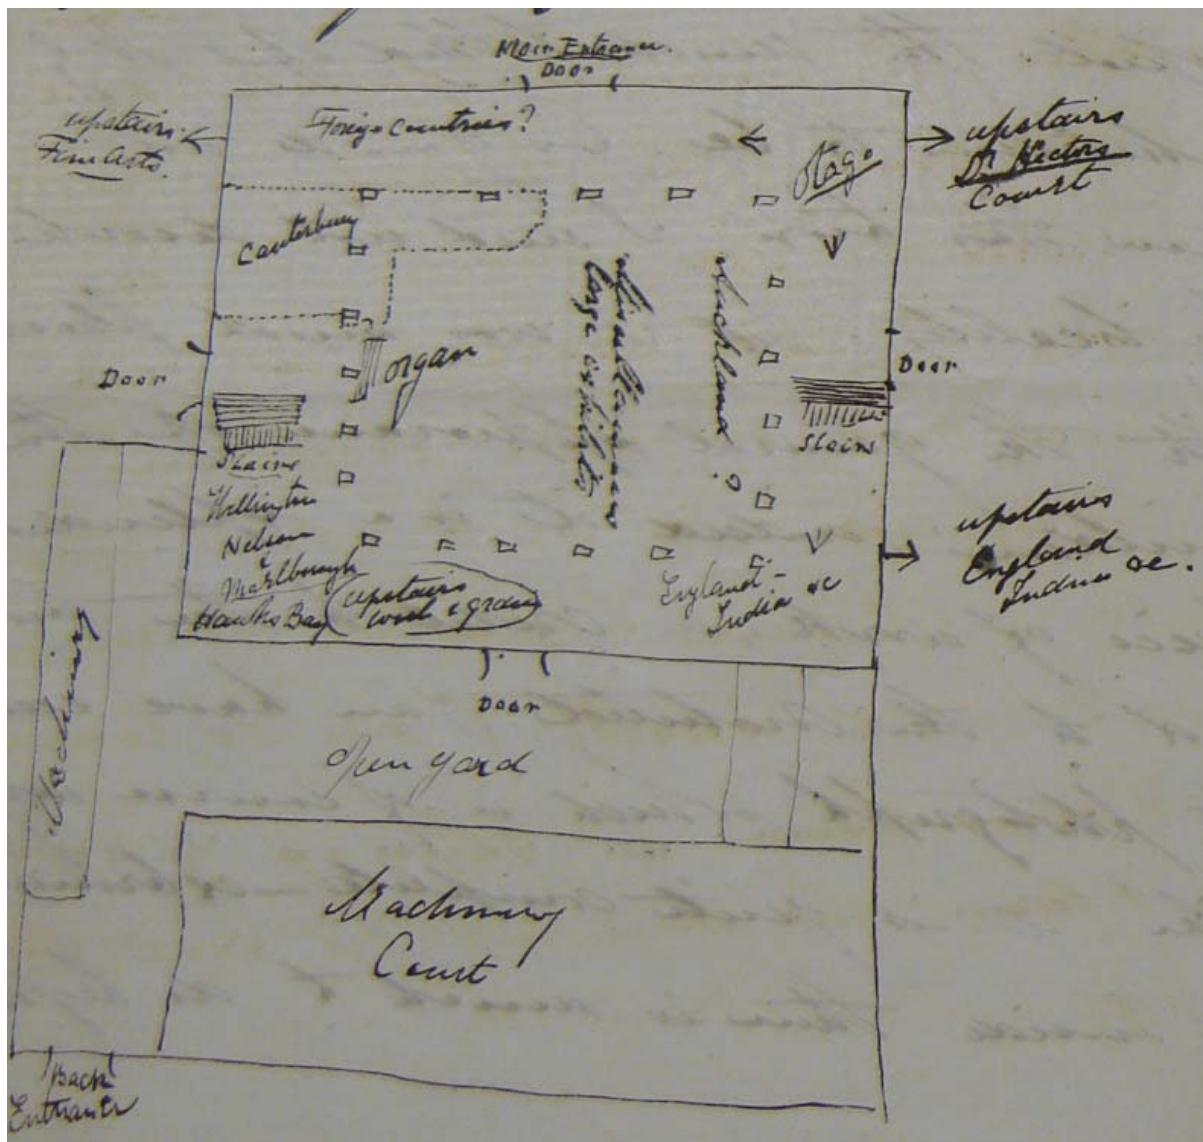 Main Entrance.
Door
upstairs
Fine Arts
Foreign Countries?
Otago
upstairs
Dr Hectors
Court
Canterbury
Miscellaneous
large exhibits
Auckland ?
Door
organ
Door
Stairs
Stairs
Wellington
Nelson
&
Marlborough
Hawks Bay
upstairs
wool & grain
England -
India &c
upstairs
England
India &c.
Door
Machinery
open yard
Machinery
Court
Back
Entrance